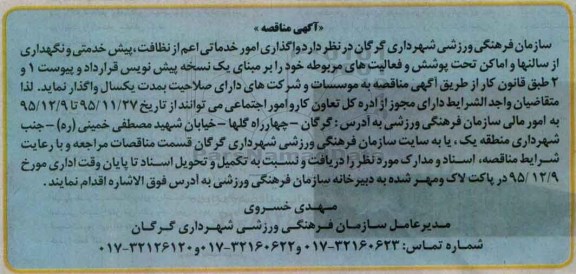 «آگهی مناقصه»
سازمان فرهنگی ورزشی شهرداری گرگان در نظر دارد واگذاری امور خدماتی اعم از نظافت، پیش خدمتی و نگهداری
از سالنها و اماکن تحت پوشش و فعالیت های مربوطه خود را بر مبنای یک نسخه پیش نویس قرارداد و پیوست ۱ و
۲ طبق قانون کار از طریق آگهی مناقصه به موسسات و شرکت های دارای صلاحیت بمدت یکسال واگذار نماید. لذا
متقاضیان واجد الشرایط دارای مجوز از اداره کل تعاون کار و امور اجتماعی می توانند از تاریخ ۹۵/۱۱/۲۷ تا ۹۵/۱۲/۹
به امور مالی سازمان فرهنگی ورزشی به آدرس: گرگان -چهارراه گلها -خیابان شهید مصطفی خمینی (ره) -جنب
شهرداری منطقه یک، یا به سایت سازمان فرهنگی ورزشی شهرداری گرگان قسمت مناقصات مراجعه و با رعایت
شرایط مناقصه، اسناد و مدارک مورد نظر را دریافت و نسبت به تکمیل و تحویل اسناد تا پایان وقت اداری مورخ
۹۵/۱۲/۹ در پاکت لاک و مهر شده به دبیرخانه سازمان فرهنگی ورزشی به آدرس فوق الاشاره اقدام نمایند.
مهدی خسروی
مدیرعامل سازمان فرهنگی ورزشی شهرداری گرگان
شماره تماس: ۳۲۱۶۰۶۲۳-۰۱۷ و ۳۲۱۶۰۶۲۲-۰۱۷ و ۳۲۱۲۶۱۲۰-۰۱۷